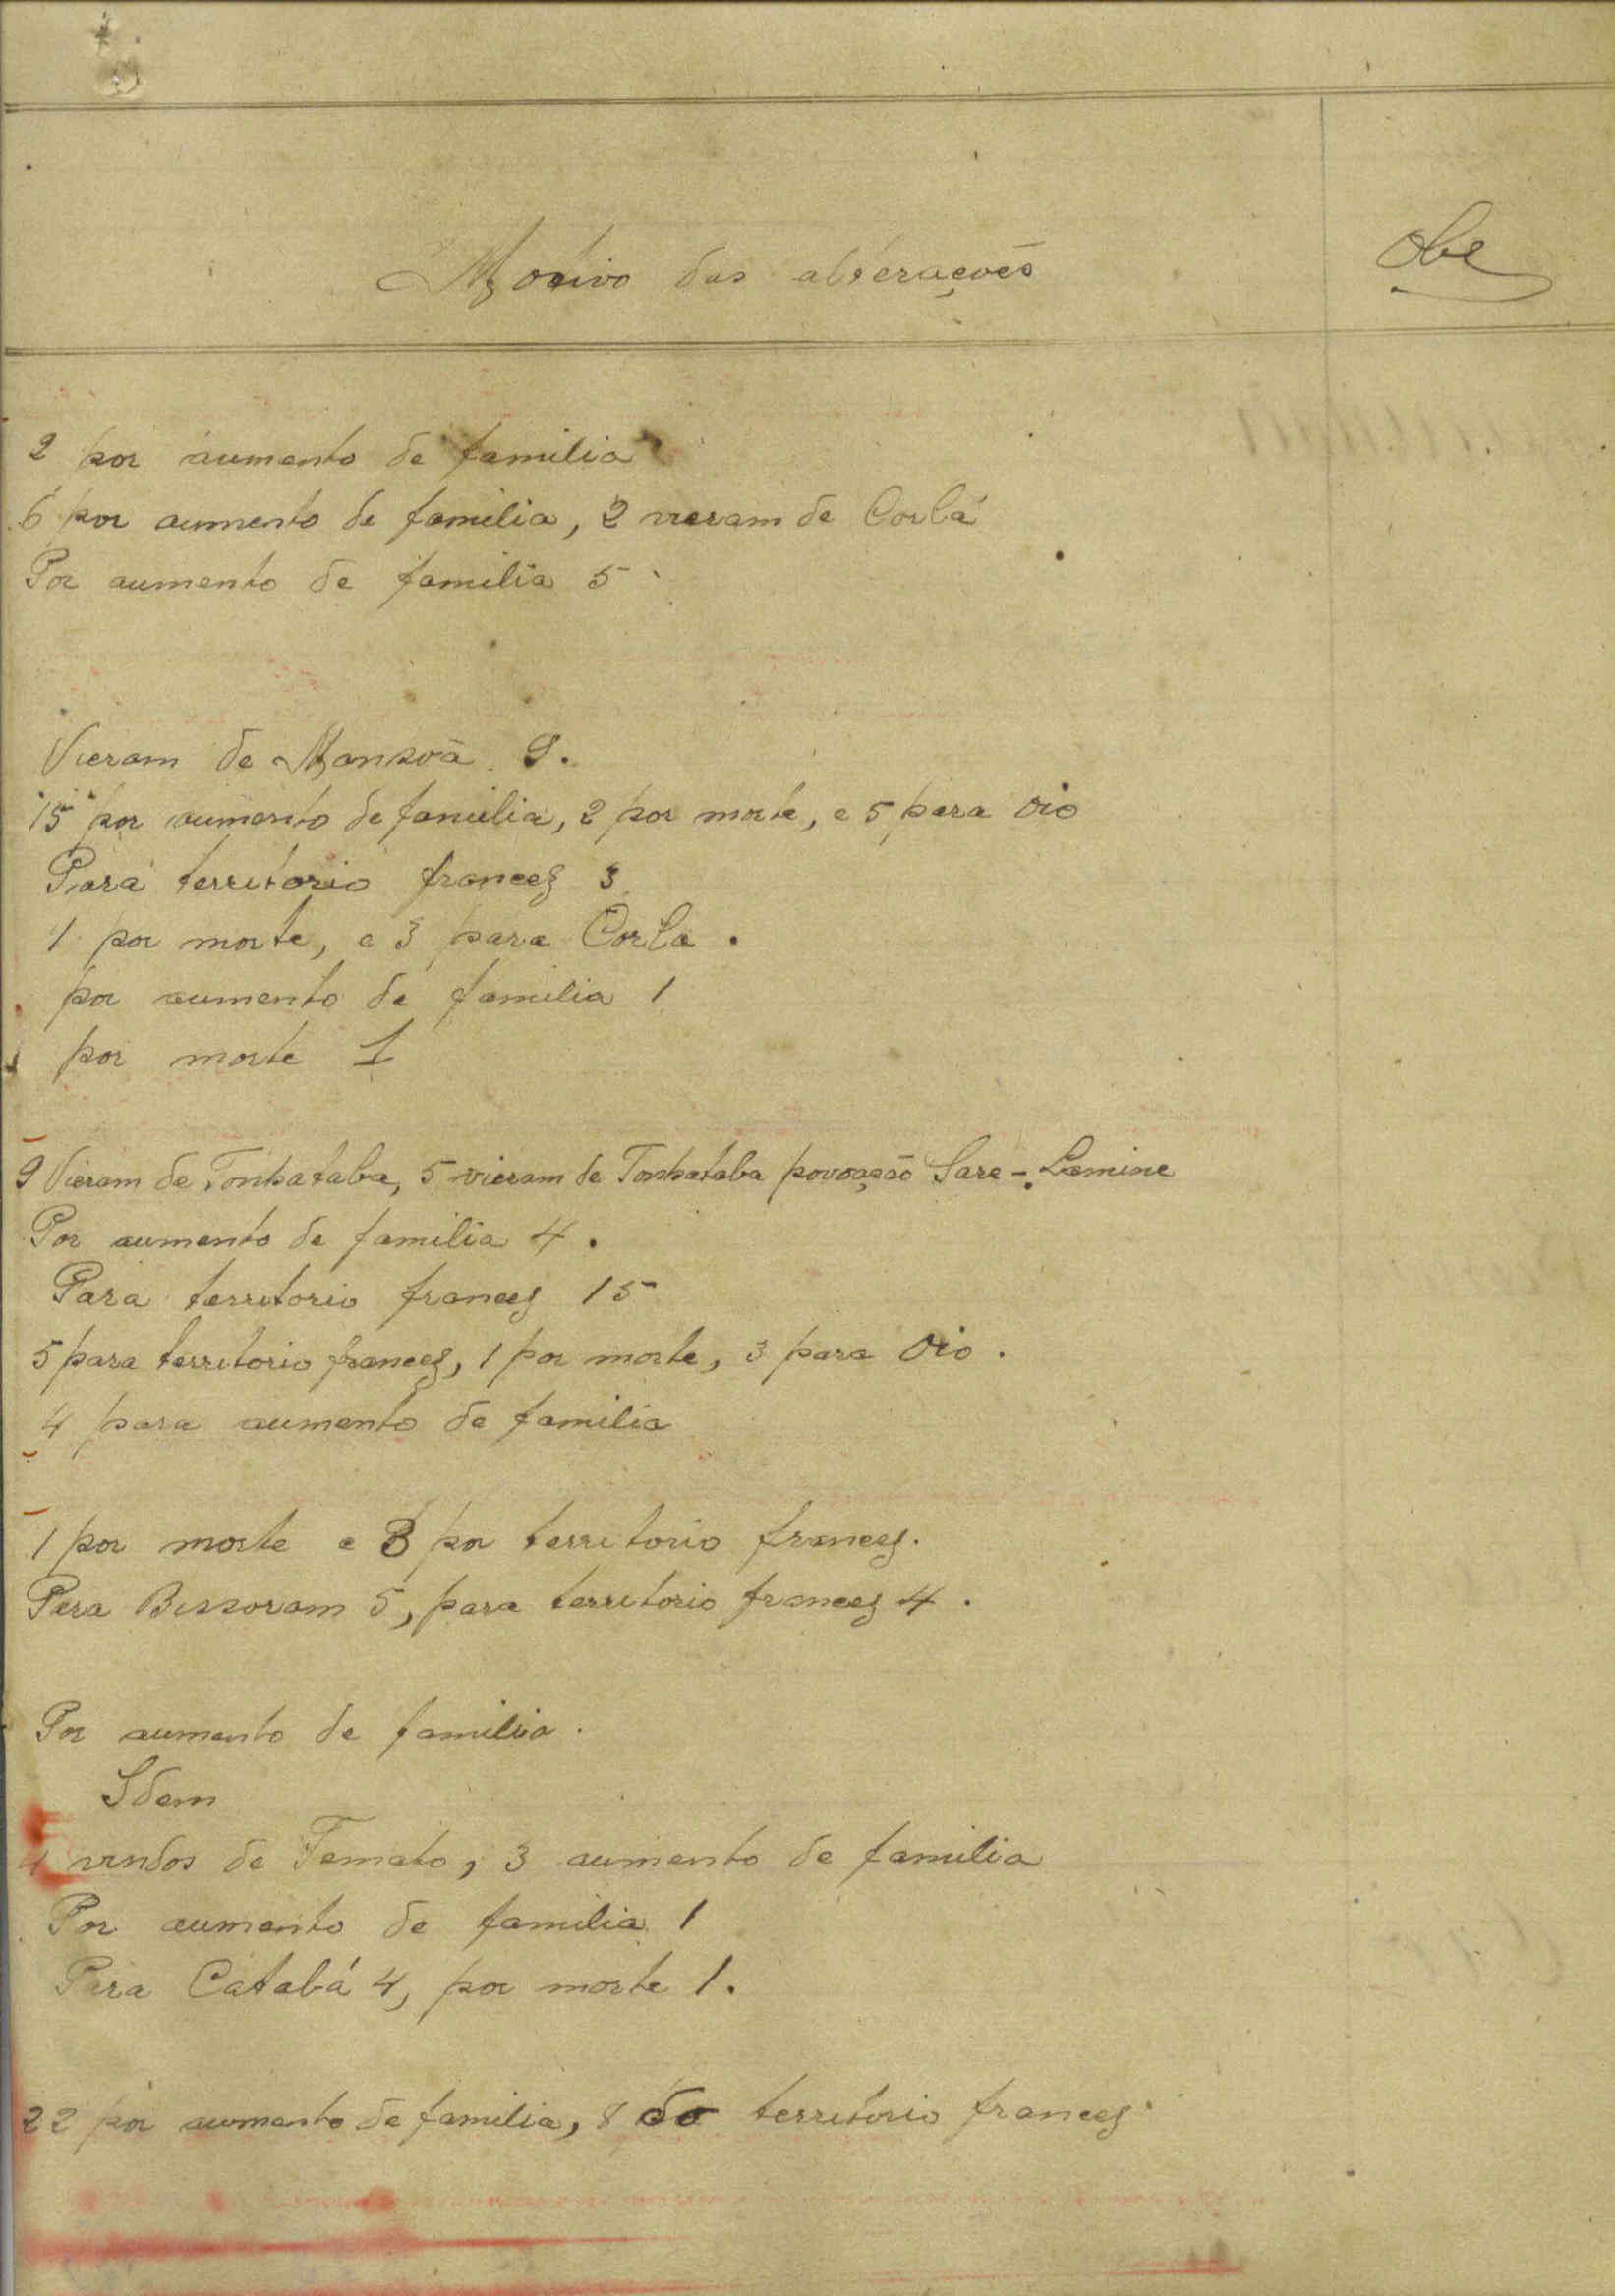 Motivo das alterações
Obs
2 por aumento de familia
6 por aumento de familia, 2 vieram de Corlá
Por aumento de familia 5
Vieram de Mansoa 9.
15 por aumento de familia, 2 por morte, e 5 para Oio
Para territorio francez 3
1 por morte, e 3 para Corla.
por aumento de familia 1
por morte 1
9 Vieram de Tonkataba, 5 vieram de Tonkataba povoação Sare-Lamine
Por aumento de familia 4.
Para territorio francez 15
5 para territorio francez, 1 por morte, 3 para Oio.
4 para aumento de familia
1 por morte e 3 por territorio francez.
Para Bissoram 5, para territorio francez 4.
Por aumento de familia.
Idem
4 vindos de Temato, 3 aumento de familia
Por aumento de familia 1
Para Catabá 4, por morte 1.
22 por aumento de familia, 8 do territorio francez